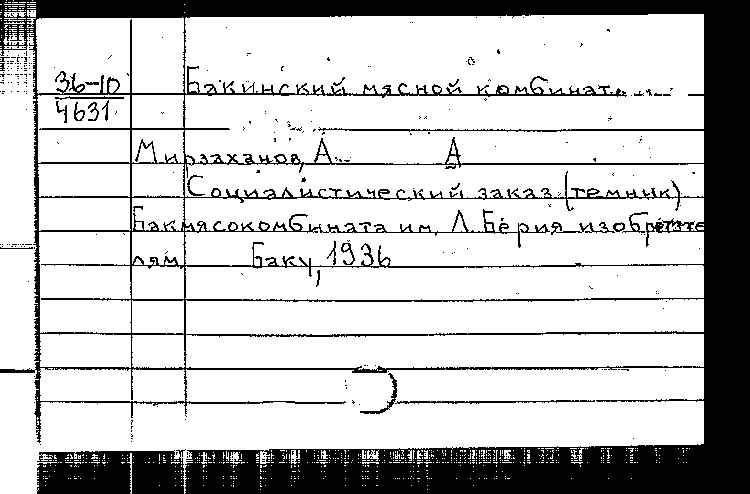 36-10
4631
Бакинский мясной комбинат.
Мирзаханов, А. А
Социалистический заказ (темник)
Бакмясокомбината им. Л. Берия изобрет
лям. Баку, 1936